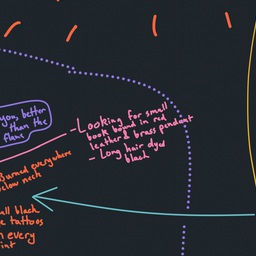 you, better
than the
-Looking for small
book bound in red
leather & brass pendant
- Long hair dyed
black
Burned everywhere
below neck
all black
tattoos
every